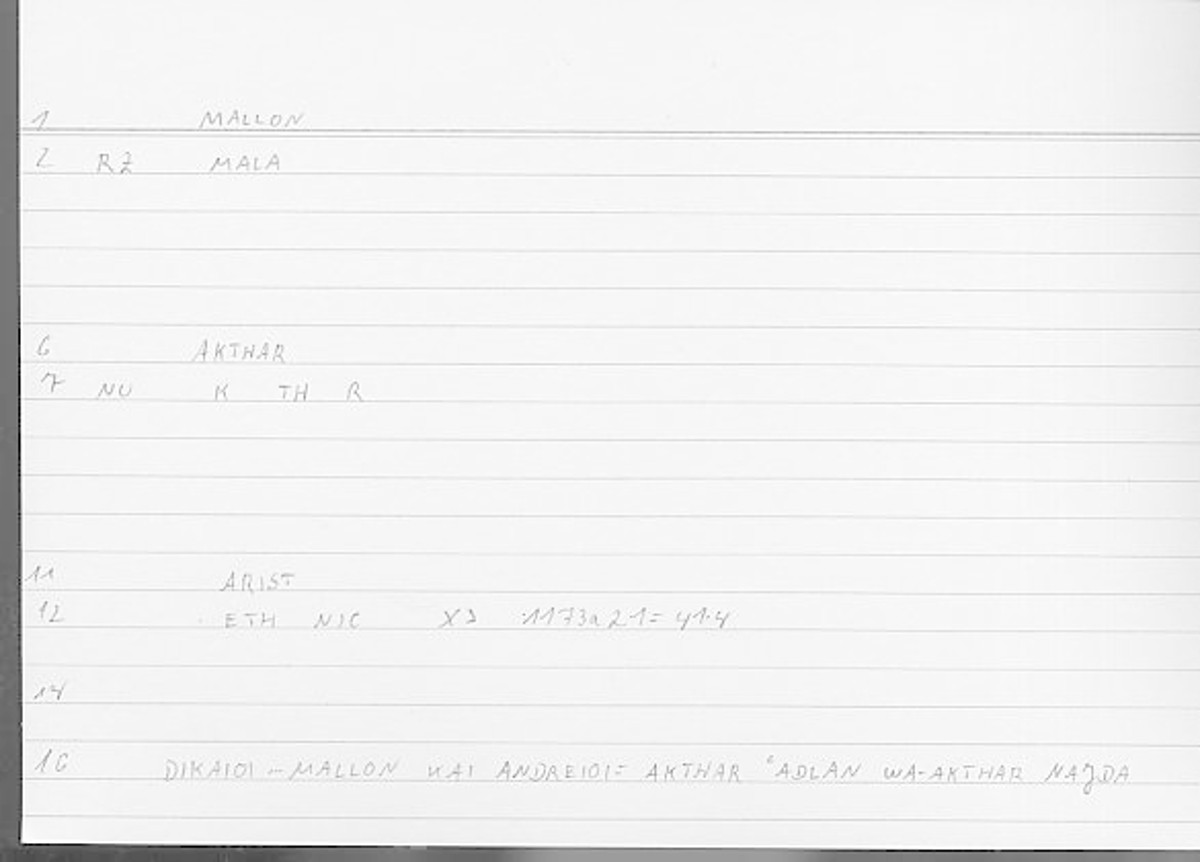 1 MALLON
2 RZ MALA
6 AKTHAR
7 NU K TH R
11 ARIST
12 ETH NIC X 1173a21= 41.4
14
16 DIKAIOI – MALLON KAI ANDREIOI= AKTHAR ʿADLAN WA-AKTHAR NAJDA